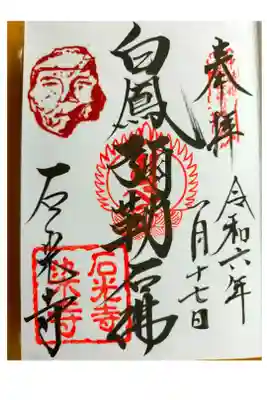 奉拝
令和六年
一月十七日
白鳳弥勒石佛
石光寺
石光寺
染寺